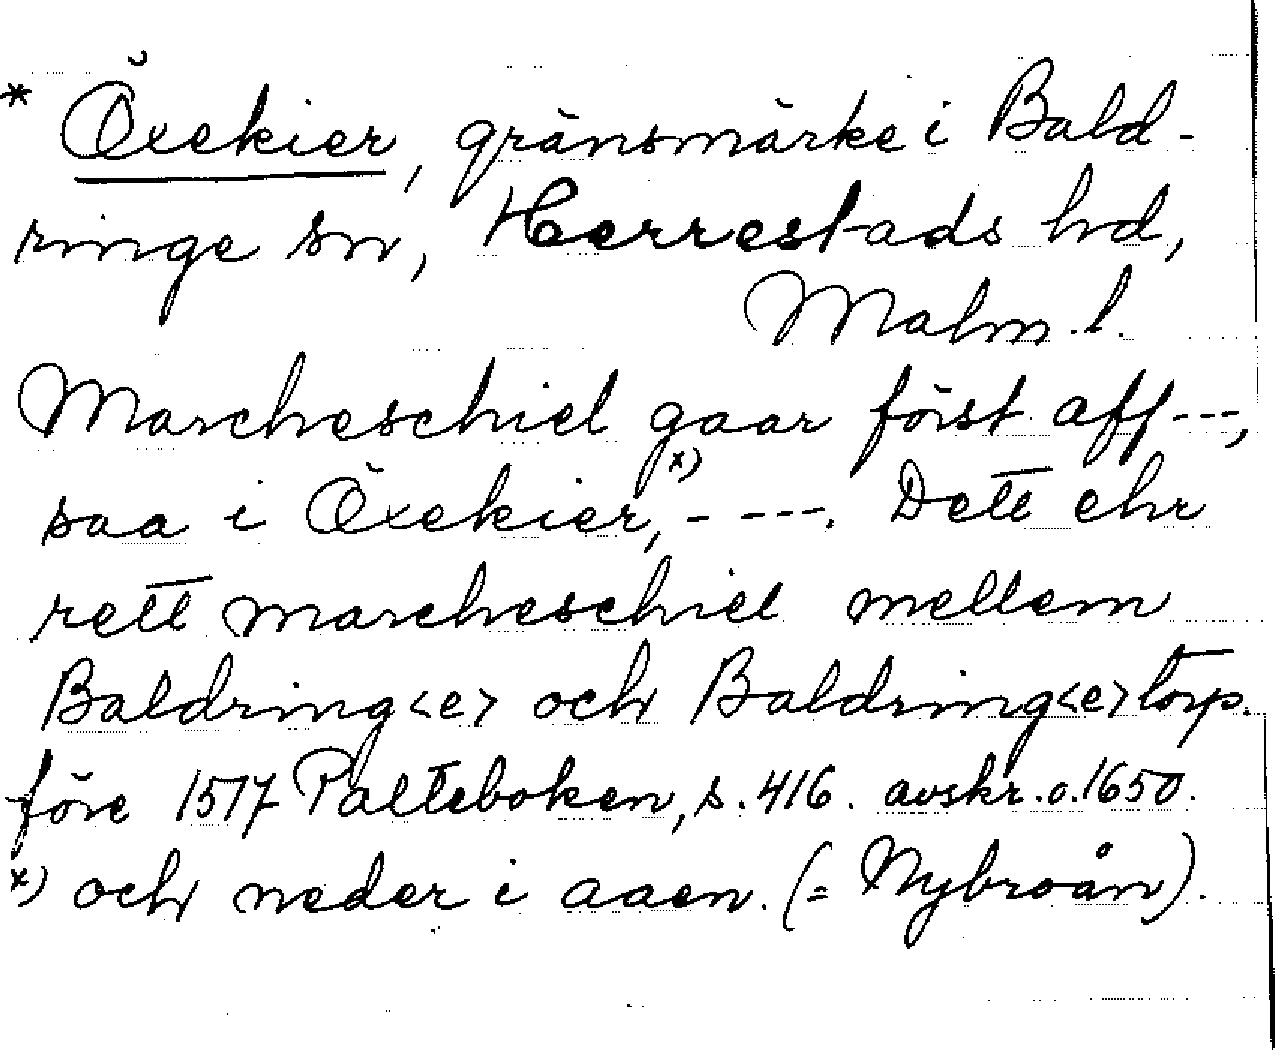 * Öxekier, gränsmärke i Bald-
ringe sn, Herrestads hd,
Malm.l.
Marcheschiel gaar först aff ---,
saa i Öxekier,x) ----. Dett ehr
rett marcheschiel mellem
Baldring<e> och Baldring<e>torp.
före 1517 Palteboken, s. 416. avskr. o. 1650.
x) och neder i aaen. (= Nybroån).